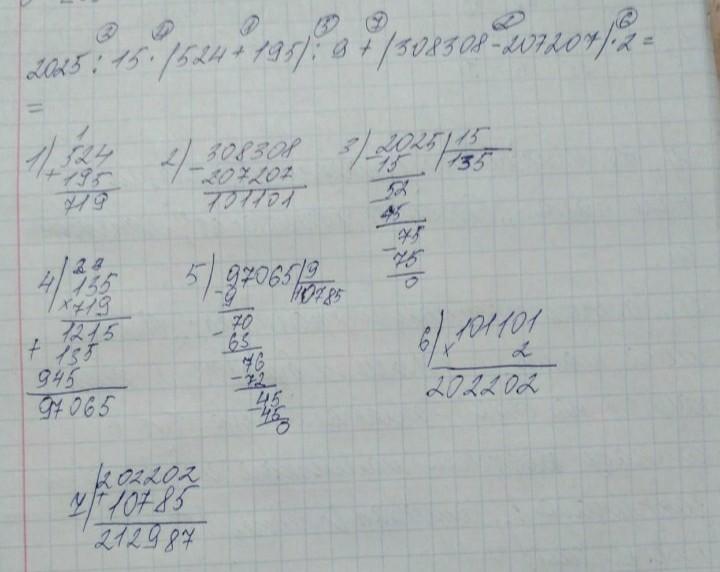 2025 : 15 · (524 + 195) : 9 + (308308 - 207207) · 2 =
=
1) 524
+ 195
719
2) - 308308
207207
101101
3) - 2025 | 15
15 | 135
- 52
45
- 75
75
0
4) 135
× 719
1215
+ 135
945
97065
5) - 97065 | 9
9 | 10785
- 70
63
- 76
- 72
- 45
45
0
6) × 101101
2
202202
7) + 202202
10785
212987